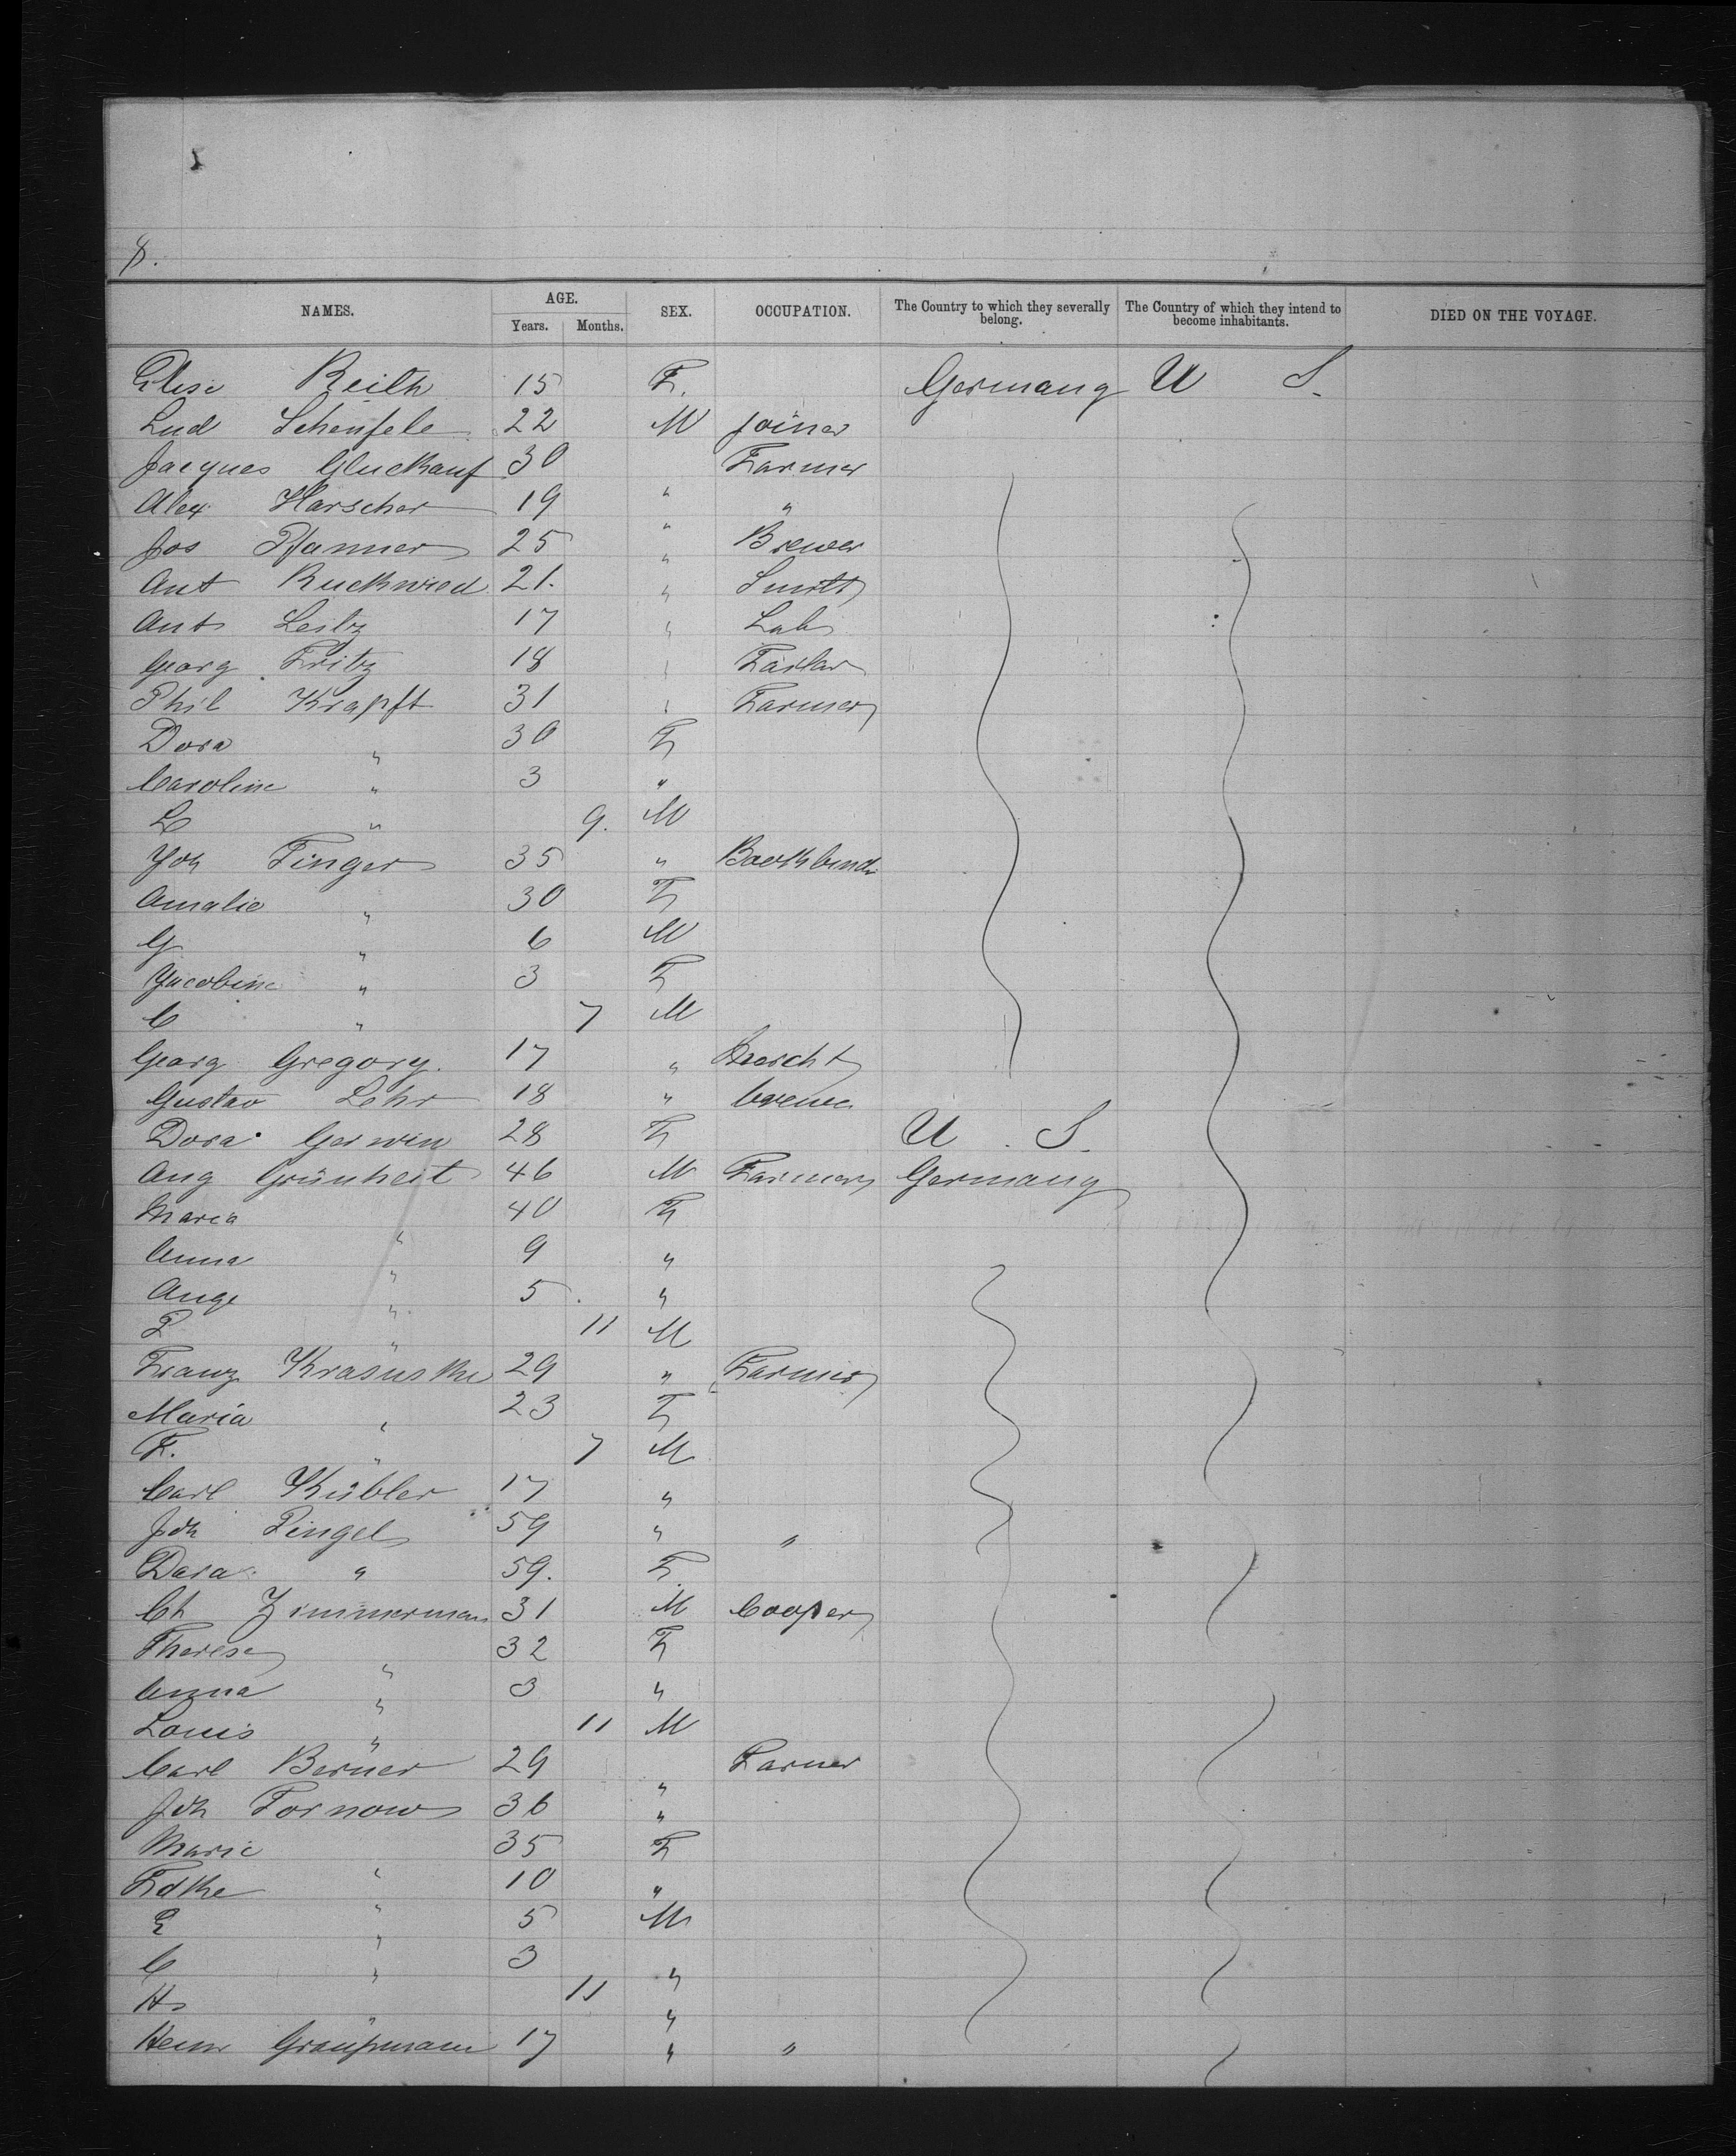 8.
NAMES. AGE. Years. Months. SEX. OCCUPATION. The Country to which they severally belong. The Country of which they intend to become inhabitants. DIED ON THE VOYAGE.
Elise Reith 15 F. Germany U S.
Lud Schenfele 22 M Joiner
Jacques Gluckauf 30 Farmer
Alex Harscher 19 " "
Jos Pfanner 25 " Brewer
Ant Ruckwied 21. " Smith
Ant Leitz 17 " Lab
Georg Fritz 18 "
Phil Krapft 31 " Farmer
Dora " 30 F
Caroline " 3 "
L " 9. M
Joh Finger 35 " Bookbind
Amalie " 30 F
G " 6 M
Jacobine " 3 F
C " 7 M
Georg Gregory. 17 "
Gustav Lehr 18 "
Dora Gerwin 28 F U. S.
Aug Grünheit 46 M Farmer Germany
Maria " 40 F
Anna " 9 "
Auge " 5 "
P " 11 M
Franz Krasuske 29 " Farmer
Maria " 23 F
F. " 7 M
Carl Kübler 17 "
Joh Pingel 59 " "
Dora " 59. F.
Ch Zimmerman 31 M Cooper
Therese " 32 F
Anna " 3 "
Louis " 11 M
Carl Berner 29 " Farmer
Joh Fornow 36 "
Marie " 35 F
" 10 "
E " 5 M
C " 3 "
H " 11 "
Heinr Graupmann 17 " "